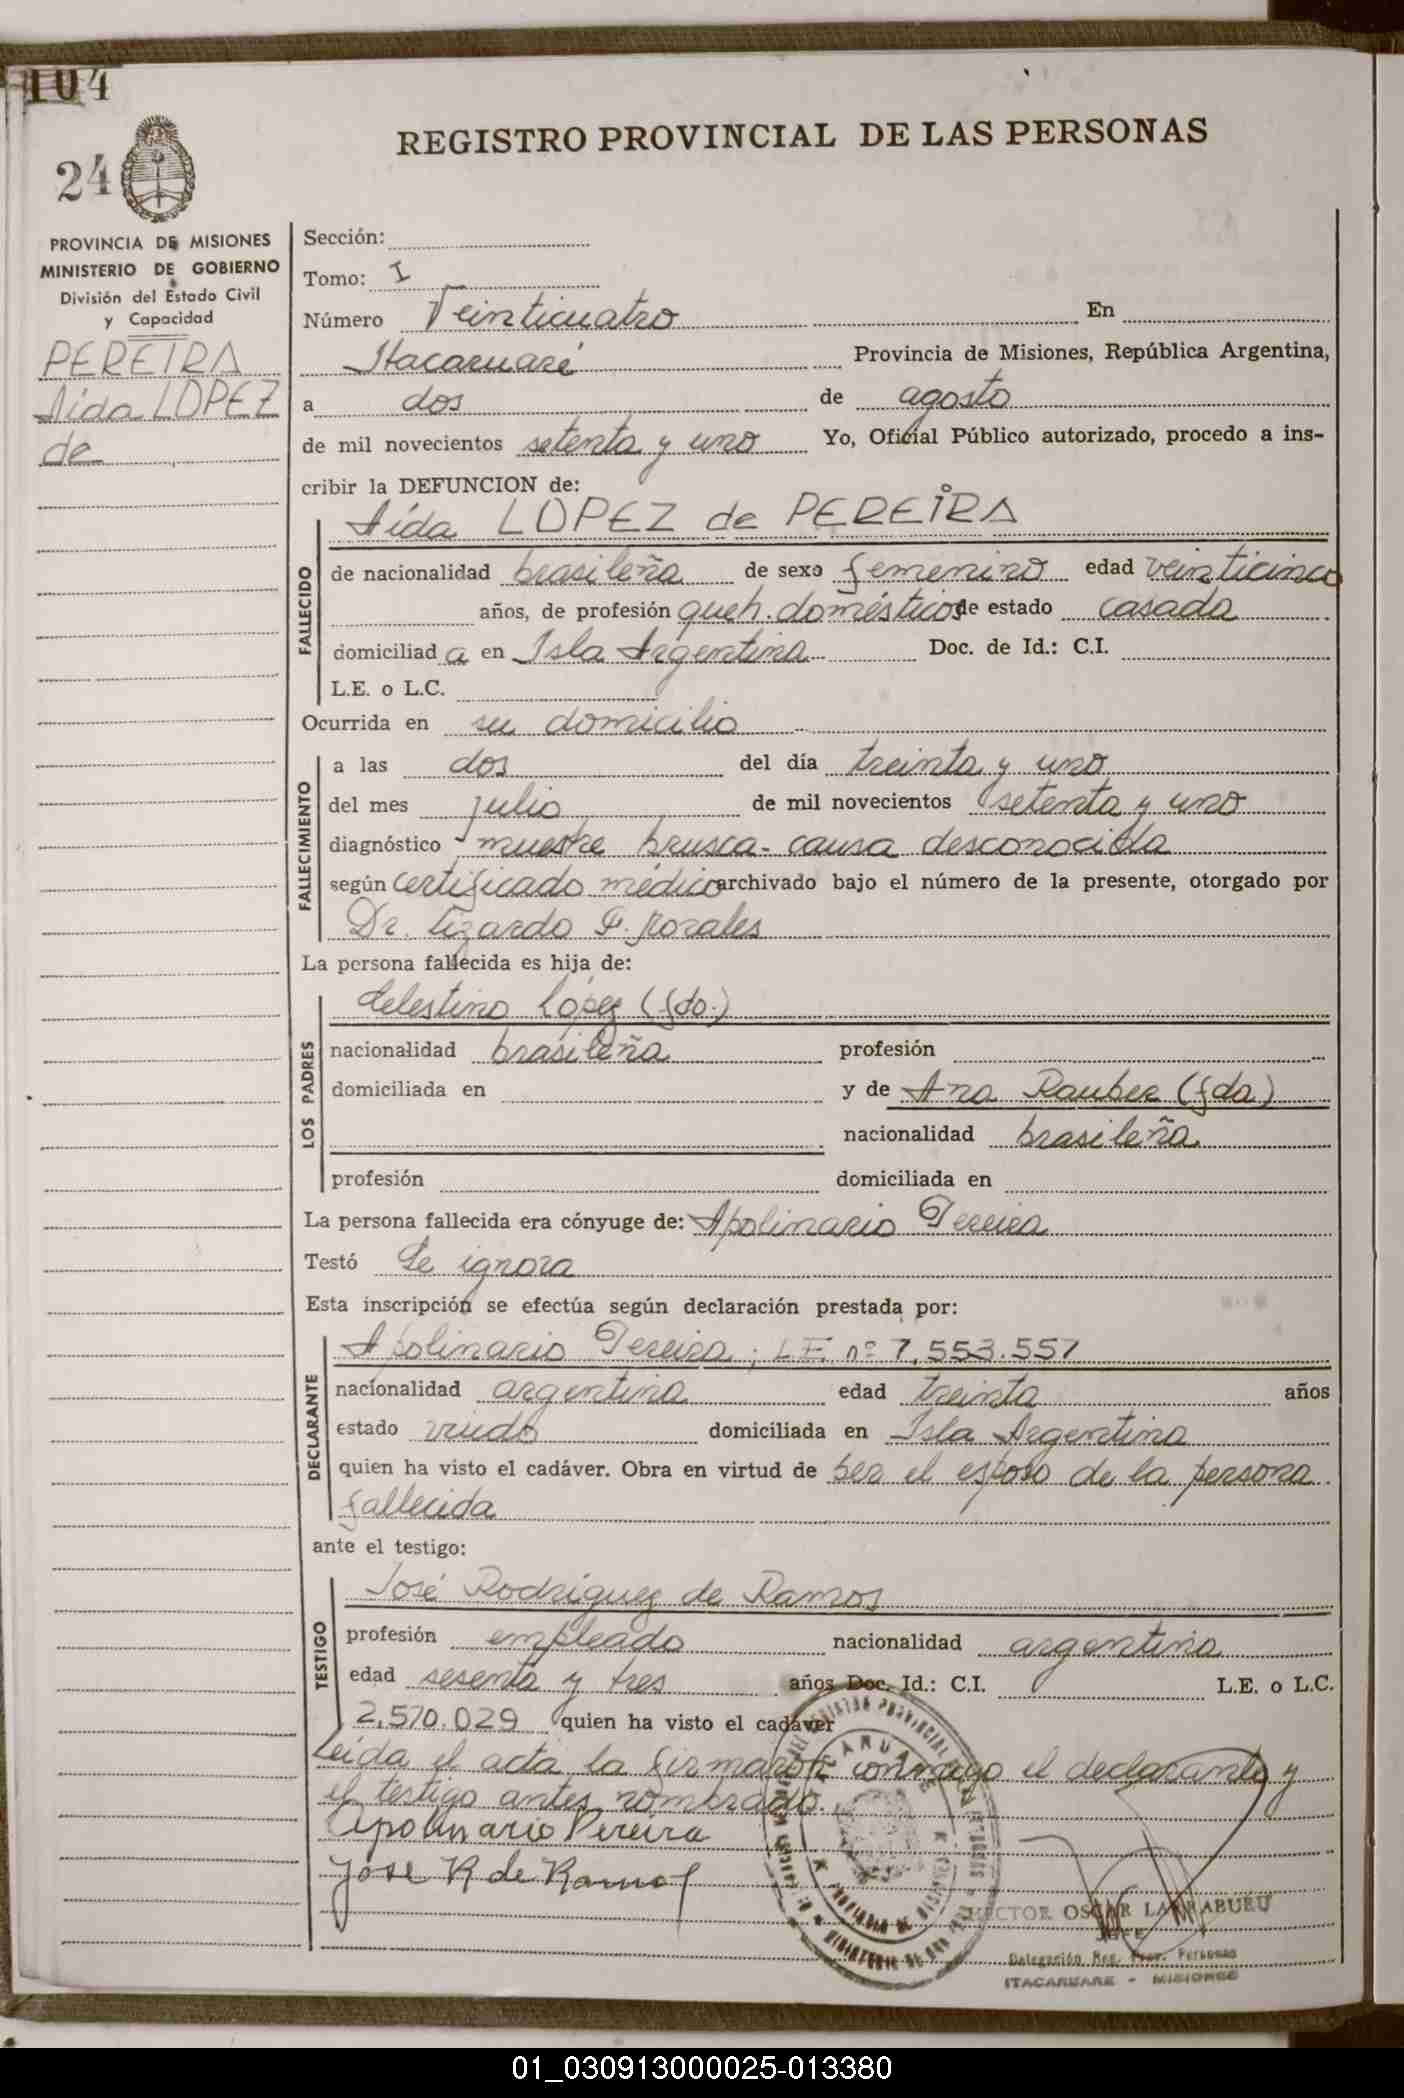 104
24
REGISTRO PROVINCIAL DE LAS PERSONAS
PROVINCIA DE MISIONES
MINISTERIO DE GOBIERNO
División del Estado Civil
y Capacidad
PEREIRA
Aída LOPEZ
de
Sección:
Tomo: I
Número Veinticuatro En
Itacaruaré Provincia de Misiones, República Argentina,
a dos de agosto
de mil novecientos setenta y uno Yo, Oficial Público autorizado, procedo a ins-
cribir la DEFUNCION de:
Aída LOPEZ de PEREIRA
FALLECIDO
de nacionalidad brasileña de sexo femenino edad veinticinco
años, de profesión queh. domésticos de estado casada
domiciliad a en Isla Argentina Doc. de Id.: C.I.
L.E. o L.C.
Ocurrida en su domicilio
FALLECIMIENTO
a las dos del día treinta y uno
del mes julio de mil novecientos setenta y uno
diagnóstico - muerte brusca - causa desconocida
según certificado médico archivado bajo el número de la presente, otorgado por
Dr. Lizardo F. Morales
La persona fallecida es hija de:
LOS PADRES
Celestino López (fdo.)
nacionalidad brasileña profesión
domiciliada en y de Ana Rauber (fda)
nacionalidad brasileña
profesión domiciliada en
La persona fallecida era cónyuge de: Apolinario Pereira
Testó Se ignora
Esta inscripción se efectúa según declaración prestada por:
DECLARANTE
Apolinario Pereira; L.E. nº 7.553.557
nacionalidad argentina edad treinta años
estado viudo domiciliada en Isla Argentina
quien ha visto el cadáver. Obra en virtud de ser el esposo de la persona
fallecida
ante el testigo:
TESTIGO
José Rodríguez de Ramos
profesión empleado nacionalidad argentina
edad sesenta y tres años Doc. Id.: C.I. L.E. o L.C.
2,570.029 quien ha visto el cadáver
Leída el acta la firmaron conmigo el declarante y
el testigo antes nombrado.
Apolinario Pereira
Jose R de Ramos
HECTOR OSCAR LARRABURU
JEFE
Delegación Reg. Prov. Personas
ITACARUARE - MISIONES
01_030913000025-013380